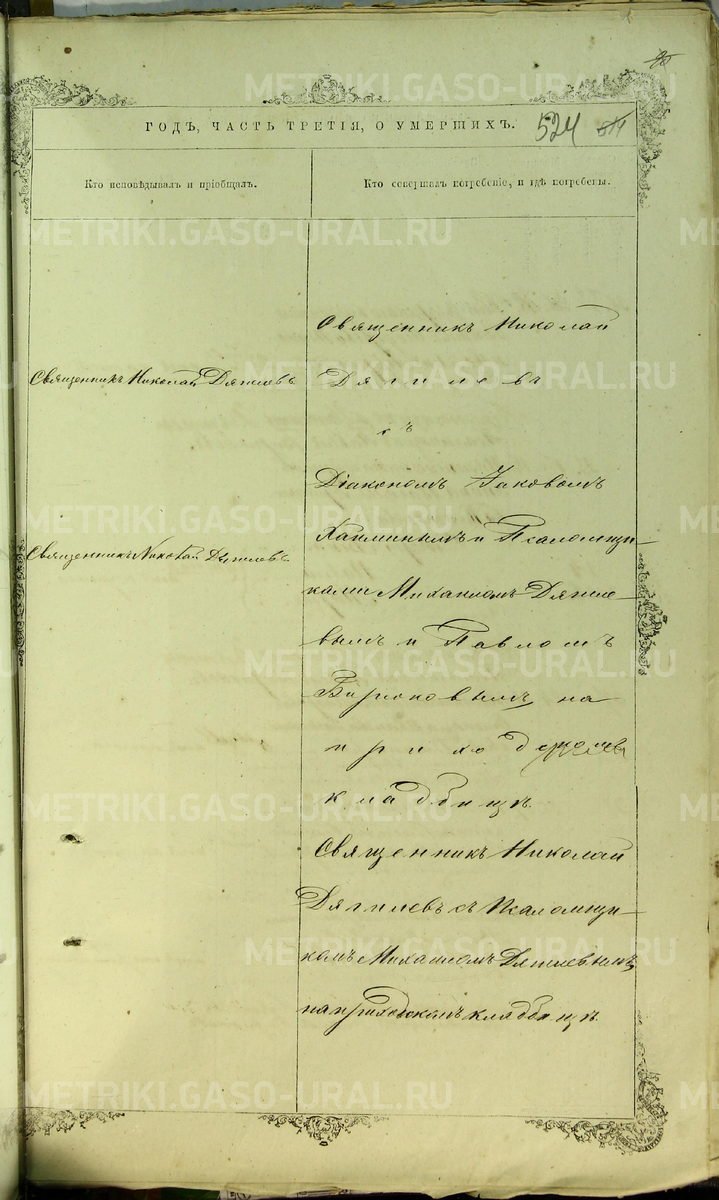 95
ГОДЪ, ЧАСТЬ ТРЕТІЯ, О УМЕРШИХЪ.
524
Кто исповѣдывалъ и пріобщалъ.
Кто совершалъ погребеніе, и гдѣ погребены.
Священникъ Николай Дягилевъ
Священникъ Николай Дягилевъ.
Священникъ Николай
Дягилевъ
съ
Діакономъ Іаковомъ
и Псаломщи-
ками Михаиломъ Дягиле-
вымъ и Павломъ
Бирюковымъ на
приходскомъ
кладбищѣ.
Священникъ Николай
Дягилевъ съ Псаломщи-
комъ Михаиломъ Дягилевымъ
на приходскомъ кладбищѣ.
METRIKI.GASO-URAL.RU